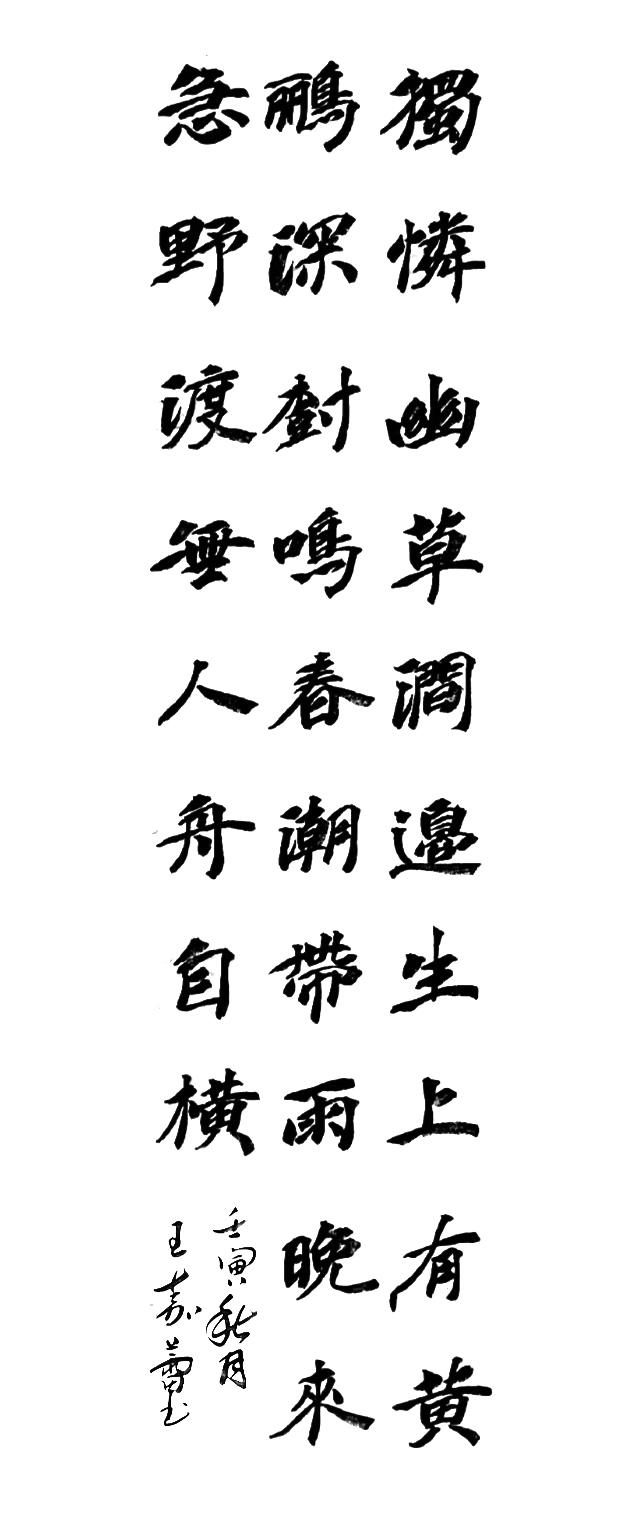 獨憐幽草澗邊生上有黃
鸝深樹鳴春潮帶雨晚來
急野渡無人舟自橫
壬寅秋月
王嘉